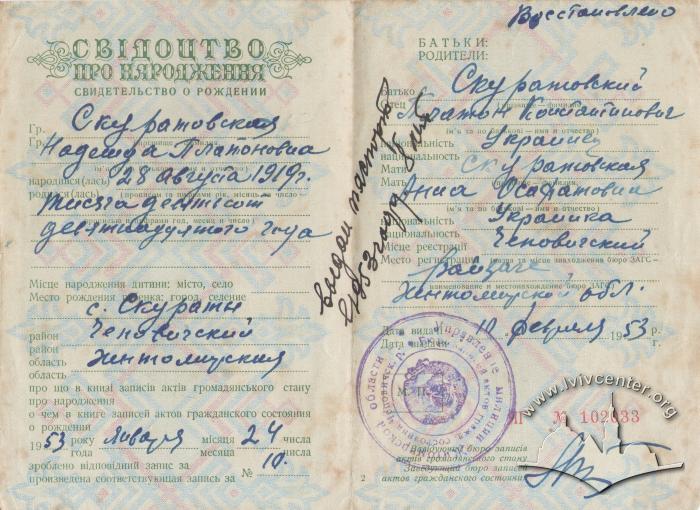 СВІДОЦТВО
ПРО НАРОДЖЕННЯ
СВИДЕТЕЛЬСТВО О РОЖДЕНИИ
Гр. Скуратовская
Надежда Платоновна
народився(лась) 28 августа 1919г.
родился(лась)
тысяча девятсот
девятнадцатого года
Місце народження дитини: місто, село
Место рождения ребенка: город, селение
с. Скураты
район Чеповичский
район
область Житомирская
область
про що в книзі записів актів громадянського стану
про народження
о чем в книге записей актов гражданского состояния
о рождении
1953 року января місяця 24 числа
года месяца числа
зроблено відповідний запис за № 10.
произведена соответствующая запись за
Восстановлено
БАТЬКИ:
РОДИТЕЛИ:
Батько Скуратовский
Отец Платон Константинович
(ім'я та по батькові - имя и отчество)
національність Украинец
национальность
Мати Скуратовская
Мать Анна
(ім'я та по батькові - имя и отчество)
національність Украинка
национальность
Місце реєстрації Чеповичский
Место регистрации
райЗАГС
наименование и местонахождение бюро ЗАГС
Житомирской обл.
Дата видачі 10 февраля 1953 р.
Дата выдачи г.
выдан паспорт
1953 года
Управление милиции
области
М. П.
№ 102033
Завідуючий бюро записів
актів громадянського стану
Заведующий бюро записей
актов гражданского состояния
2
www.lvivcenter.org